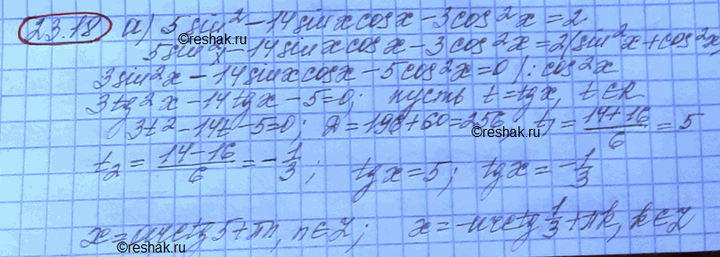 23.18 а) 5 sin² - 14 sinx cosx - 3cos²x = 2
5 sin²x - 14 sinx cosx - 3 cos²x = 2(sin²x + cos²x
3 sin²x - 14 sinx cosx - 5cos²x = 0 | : cos²x
3tg²x - 14tgx - 5 = 0; пусть t = tgx, t ∈ R
3t² - 14t - 5 = 0; D = 196 + 60 = 256 t₁ = (14+16)/6 = 5
t₂ = (14-16)/6 = -1/3; tgx = 5; tgx = -1/3
x = arctg5 + πn, n ∈ Z; x = -arctg 1/3 + πk, k ∈ Z
©reshak.ru
©reshak.ru
©reshak.ru
©reshak.ru